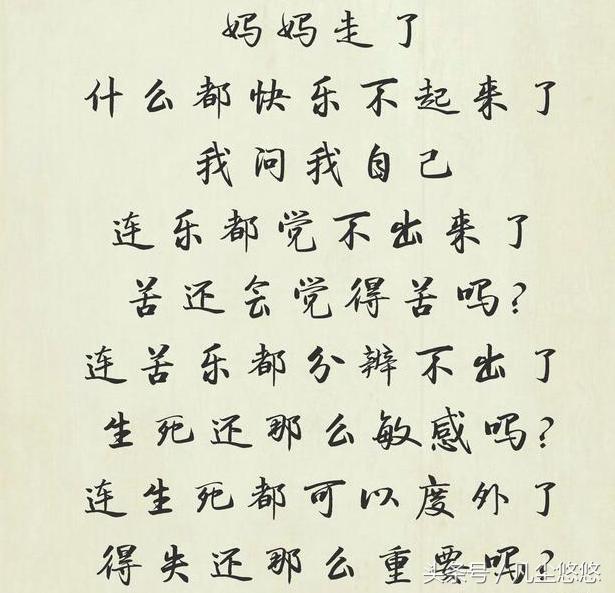 妈妈走了
什么都快乐不起来了
我问我自己
连乐都觉不出来了
苦还会觉得苦吗?
连苦乐都分辨不出了
生死还那么敏感吗?
连生死都可以度外了
得失还那么重要吗?
头条号/凡尘悠悠